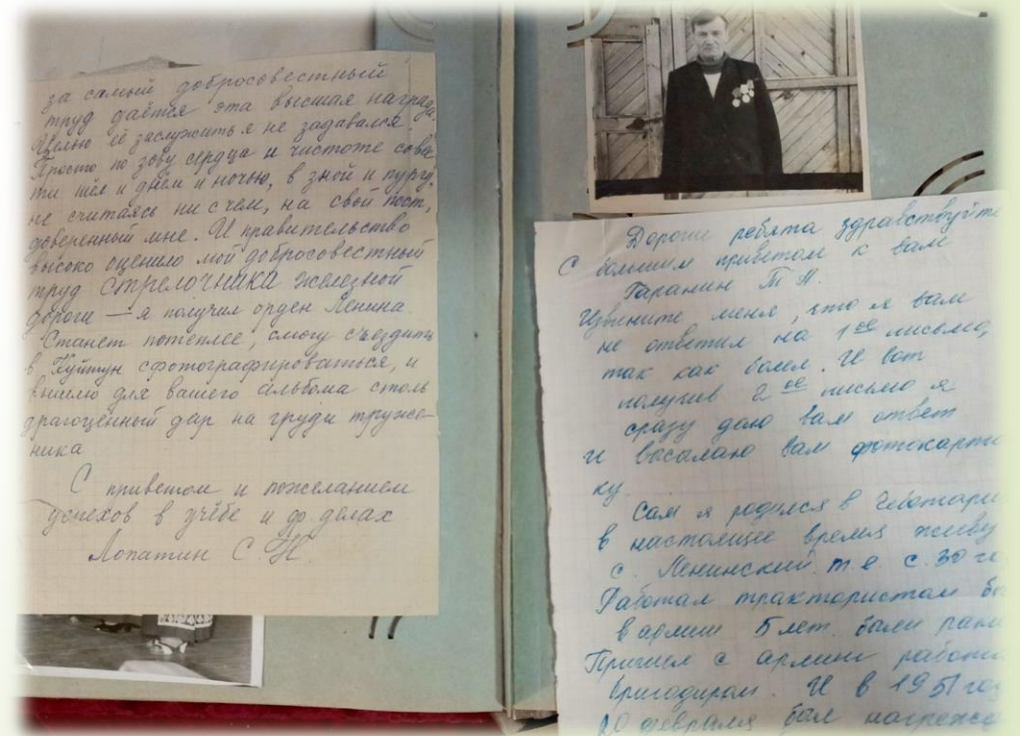 за самый добросовестный
труд даётся эта высшая награда.
Целью её заслужить я не задавался.
Просто по зову сердца и чистоте совес
ти шёл и днём и ночью, в зной и пургу,
не считаясь ни с чем, на свой пост,
доверенный мне. И правительство
высоко оценило мой добросовестный
труд стрелочника железной
дороги — я получил орден Ленина.
Станет потеплее, смогу съездить
в Куйтун сфотографироваться, и
вышлю для вашего альбома столь
драгоценный дар на груди труже-
ника
С приветом и пожеланием
успехов в учёбе и др. делах
Лопатин С.Н.
Дороги ребята здравствуйте
С большим приветом к вам
Гаранин
Извините меня, что я вам
не ответил на 1ое письмо,
так как болел. И вот
получив 2ое письмо я
сразу даю вам ответ
и высалаю вам фотокарто
ку.
Сам я родился в Чеботари
в настоящее время живу
с. Ленинский т.е. с. 30 го
Работал трактористом бы
в армии 5 лет. были ране
Пришел с армии работ
бригадиром. И в 1951 го
20 февраля был награжд